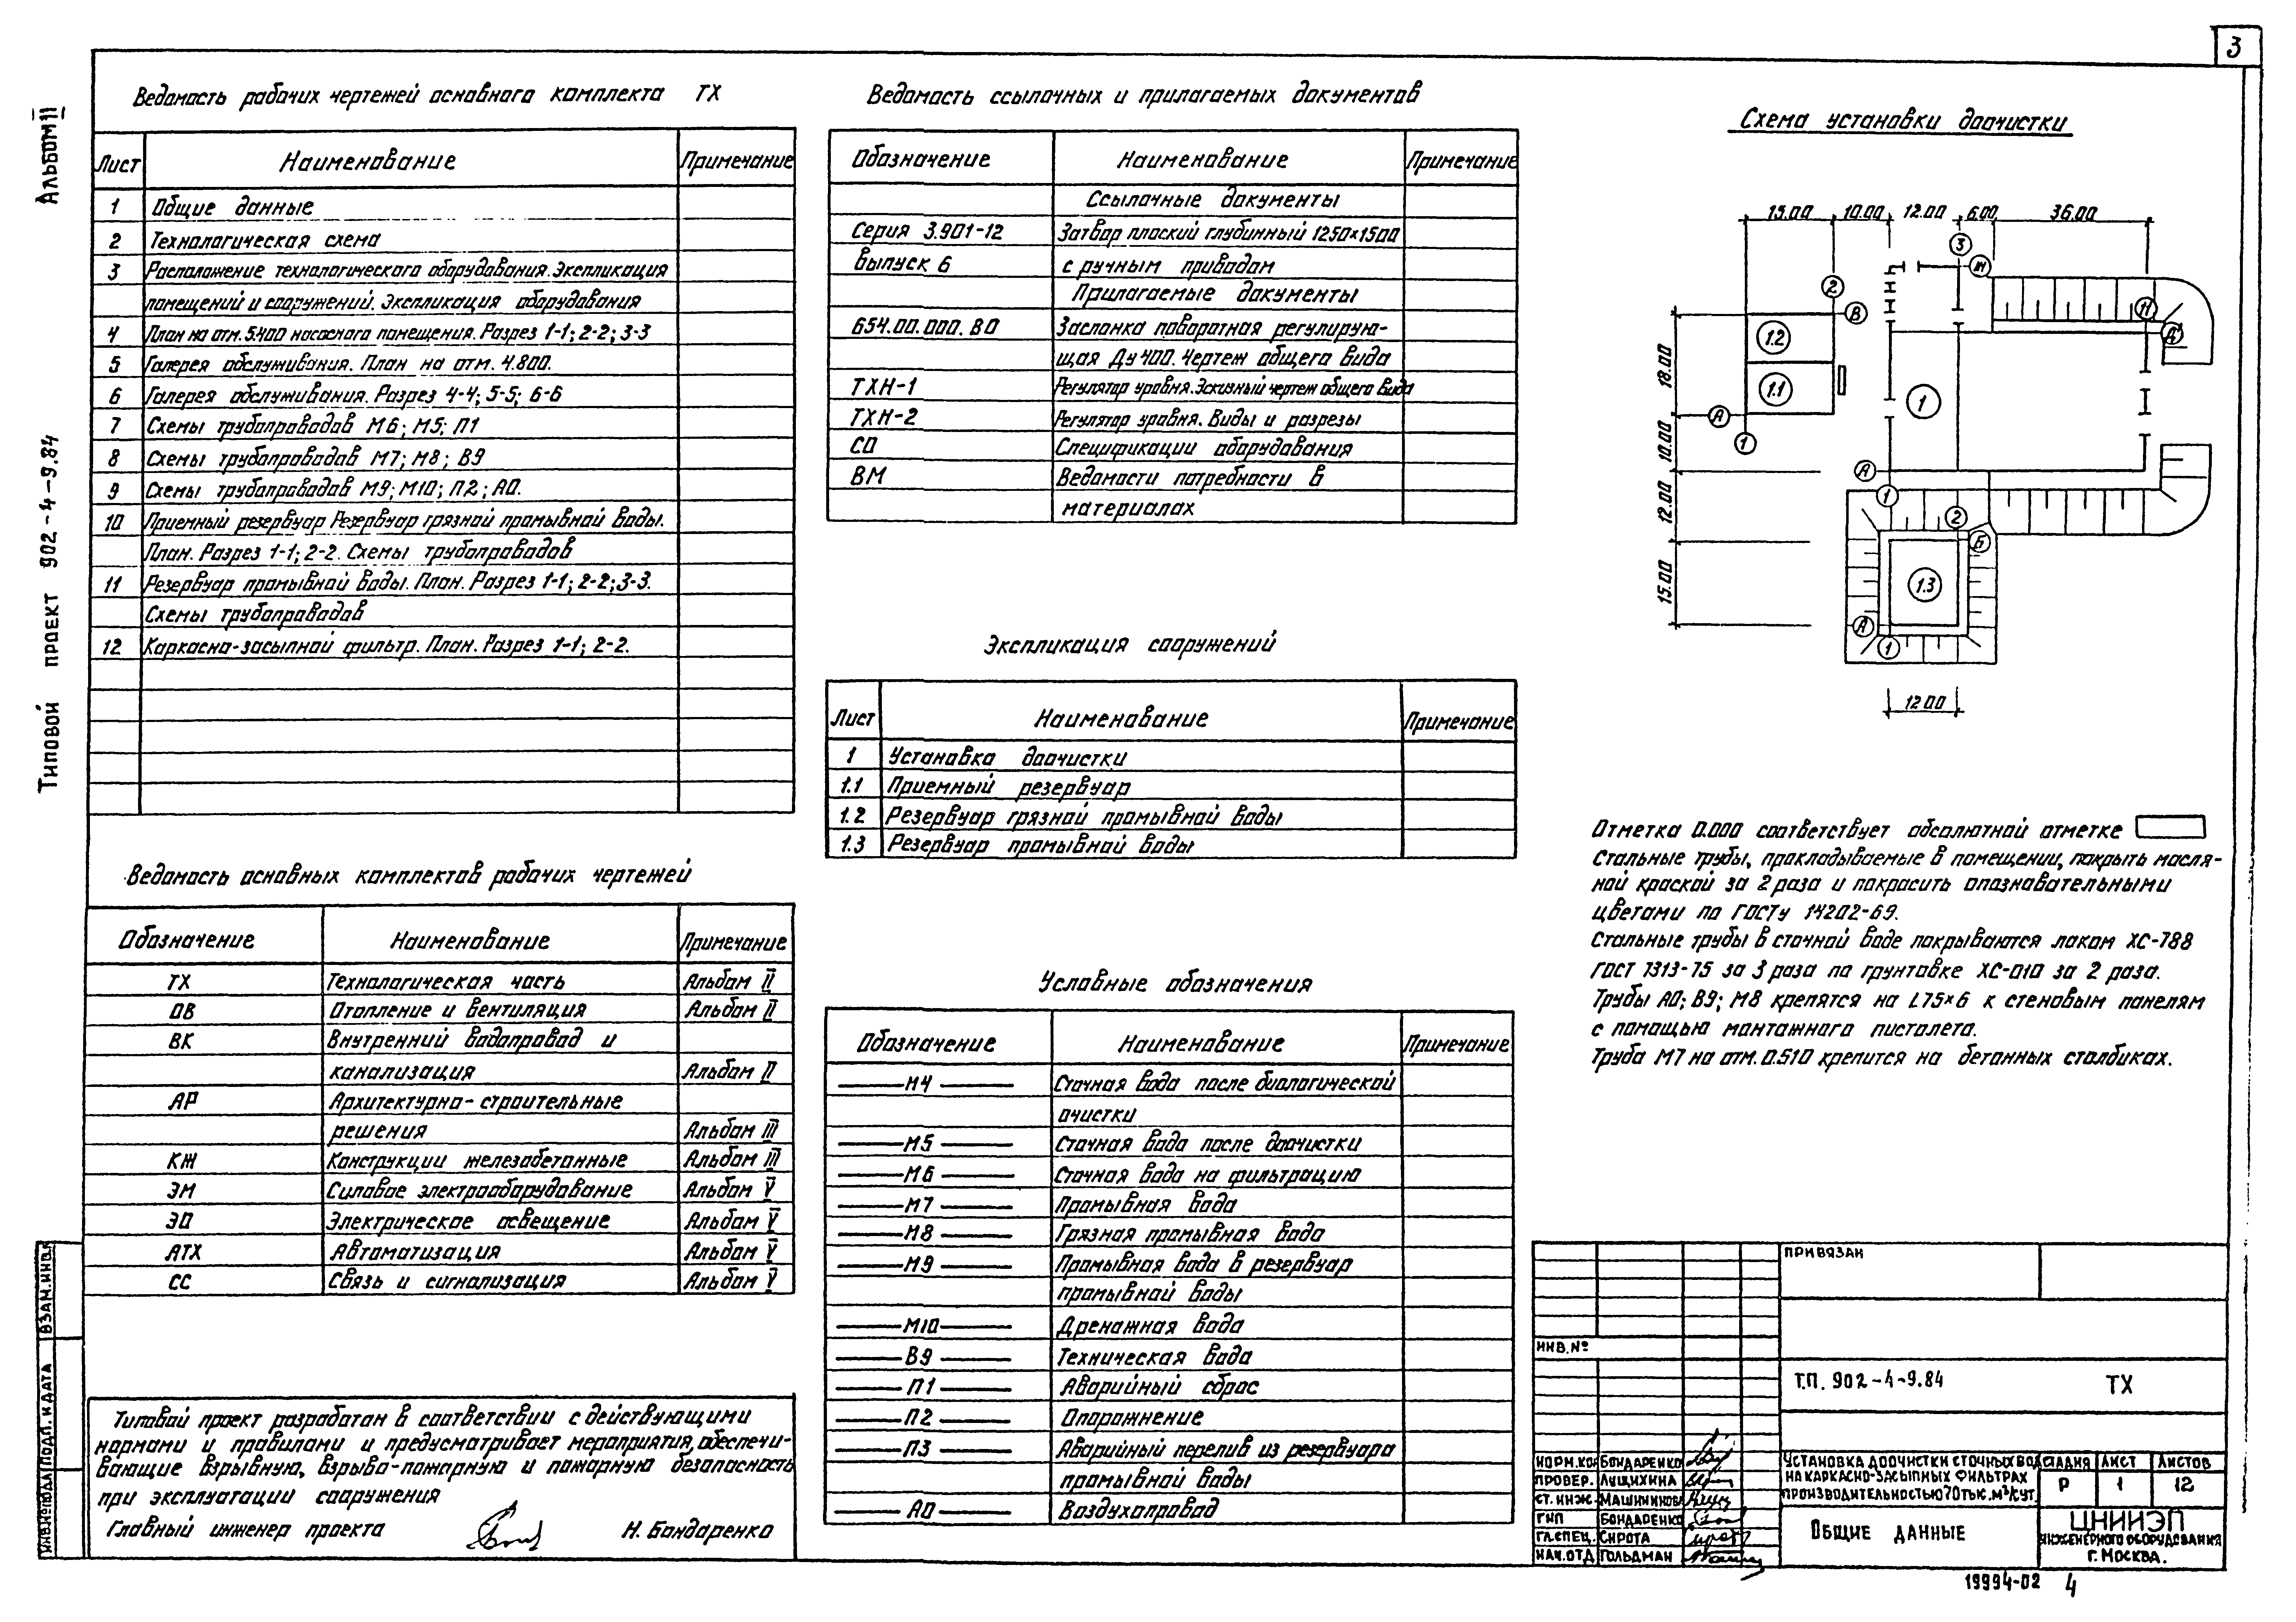 3
Альбом II
Типовой проект 902-4-9.84
Ведомость рабочих чертежей основного комплекта ТХ
Лист Наименование Примечание
1 Общие данные
2 Технологическая схема
3 Расположение технологического оборудования. Экспликация
помещений и сооружений. Экспликация оборудования
4 План на отм. 5.400 насосного помещения. Разрез 1-1; 2-2; 3-3
5 Галерея обслуживания. План на отм. 4.800.
6 Галерея обслуживания. Разрез 4-4; 5-5; 6-6
7 Схемы трубопроводов М6; М5; П1
8 Схемы трубопроводов М7; М8; В9
9 Схемы трубопроводов М9; М10; П2; А0.
10 Приемный резервуар Резервуар грязной промывной воды.
План. Разрез 1-1; 2-2. Схемы трубопроводов
11 Резервуар промывной воды. План. Разрез 1-1; 2-2; 3-3.
Схемы трубопроводов
12 Каркасно-засыпной фильтр. План. Разрез 1-1; 2-2.
Ведомость основных комплектов рабочих чертежей
Обозначение Наименование Примечание
ТХ Технологическая часть Альбом II
ОВ Отопление и вентиляция Альбом II
ВК Внутренний водопровод и
канализация Альбом II
АР Архитектурно-строительные
решения Альбом III
КЖ Конструкции железобетонные Альбом III
ЭМ Силовое электрооборудование Альбом V
ЭО Электрическое освещение Альбом V
АТХ Автоматизация Альбом V
СС Связь и сигнализация Альбом V
Типовой проект разработан в соответствии с действующими
нормами и правилами и предусматривает мероприятия, обеспечи-
вающие взрывную, взрыво-пожарную и пожарную безопасность
при эксплуатации сооружения
Главный инженер проекта Н. Бондаренко
Ведомость ссылочных и прилагаемых документов
Обозначение Наименование Примечание
Ссылочные документы
Серия 3.901-12 Затвор плоский глубинный 1250×1500
выпуск 6 с ручным приводом
Прилагаемые документы
654.00.000.ВО Заслонка поворотная регулирую-
щая Ду 400. Чертеж общего вида
ТХН-1 Регулятор уровня. Эскизный чертеж общего вида
ТХН-2 Регулятор уровня. Виды и разрезы
СО Спецификации оборудования
ВМ Ведомости потребности в
материалах
Экспликация сооружений
Лист Наименование Примечание
1 Установка доочистки
1.1 Приемный резервуар
1.2 Резервуар грязной промывной воды
1.3 Резервуар промывной воды
Условные обозначения
Обозначение Наименование Примечание
М4 Сточная вода после биологической
очистки
М5 Сточная вода после доочистки
М6 Сточная вода на фильтрацию
М7 Промывная вода
М8 Грязная промывная вода
М9 Промывная вода в резервуар
промывной воды
М10 Дренажная вода
В9 Техническая вода
П1 Аварийный сброс
П2 Опорожнение
П3 Аварийный перелив из резервуара
промывной воды
А0 Воздухопровод
Схема установки доочистки
15.00 10.00 12.00 6.00 36.00
3
И
2
В
11
Д
1.2
18.00
1.1
1
А
1
10.00
А
1
12.00
2
Б
15.00
1.3
А
1
12.00
Отметка 0.000 соответствует абсолютной отметке
Стальные трубы, прокладываемые в помещении, покрыть масля-
ной краской за 2 раза и покрасить опознавательными
цветами по ГОСТу 14202-69.
Стальные трубы в сточной воде покрываются лаком ХС-788
ГОСТ 7313-75 за 3 раза по грунтовке ХС-010 за 2 раза.
Трубы А0; В9; М8 крепятся на L75×6 к стеновым панелям
с помощью монтажного пистолета.
Труба М7 на отм. 0.510 крепится на бетонных столбиках.
Привязан
Инв. №
Т.П. 902-4-9.84 ТХ
Норм.кон Бондаренко
Провер. Лущихина
Ст. инж. Машинников
ГИП Бондаренко
Гл.спец. Сирота
Нач.отд Гольдман
Установка доочистки сточных вод
на каркасно-засыпных фильтрах
производительностью 70 тыс. м³/сут.
Стадия Лист Листов
Р 1 12
Общие данные
ЦНИИЭП
инженерного оборудования
г. Москва.
Взам.инв.№
Подп. и дата
Инв.№ подл
19994-02 4